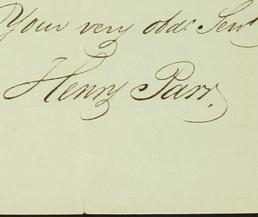 Your very obdt. Servt
Henry Parr.